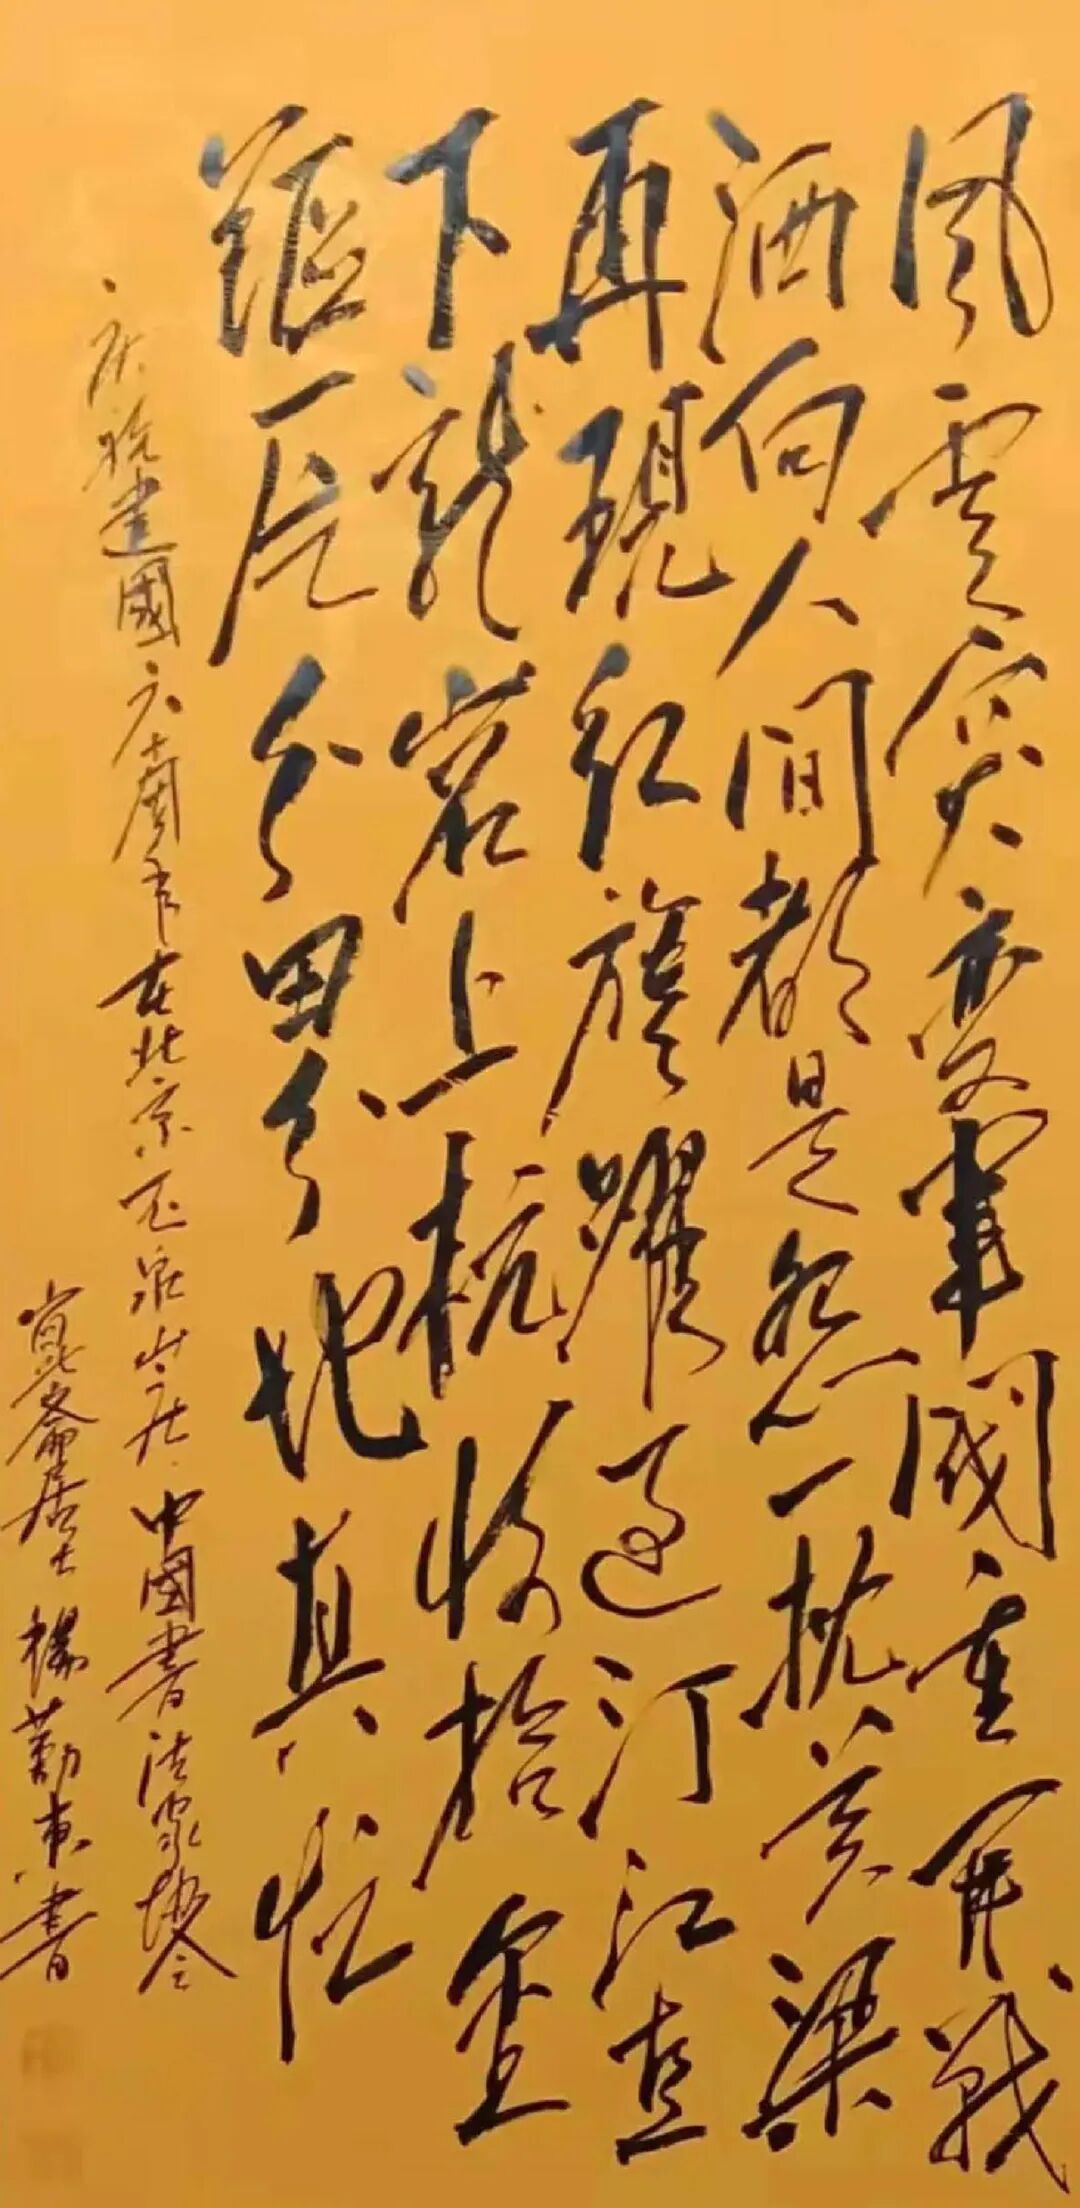 風雲突變軍閥重開戰
洒向人間都是怨一枕黄梁
再現紅旗躍過汀江直
下龍岩上杭收拾金
甌一片分田分地真忙
慶祝建國六十周年在北京玉泉山庄中國書法家協会
居士楊勤東書